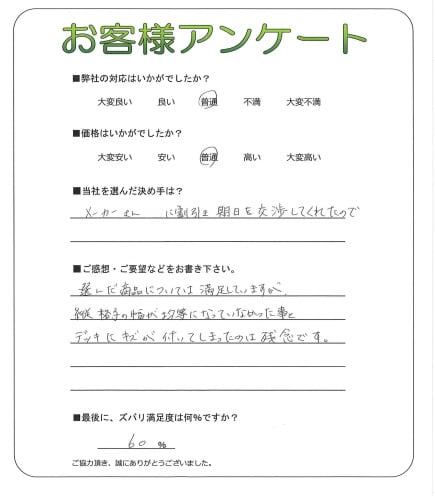 お客様アンケート
■弊社の対応はいかがでしたか？
大変良い 良い 普通 不満 大変不満
■価格はいかがでしたか？
大変安い 安い 普通 高い 大変高い
■当社を選んだ決め手は？
メーカーさん に割引き期日を交渉してくれたので
■ご感想・ご要望などをお書き下さい。
選んだ商品については満足していますが、
縦格子の幅が均等になっていなかった事と
デッキにキズが付いてしまったのは残念です。
■最後に、ズバリ満足度は何％ですか？
60 %
ご協力頂き、誠にありがとうございました。